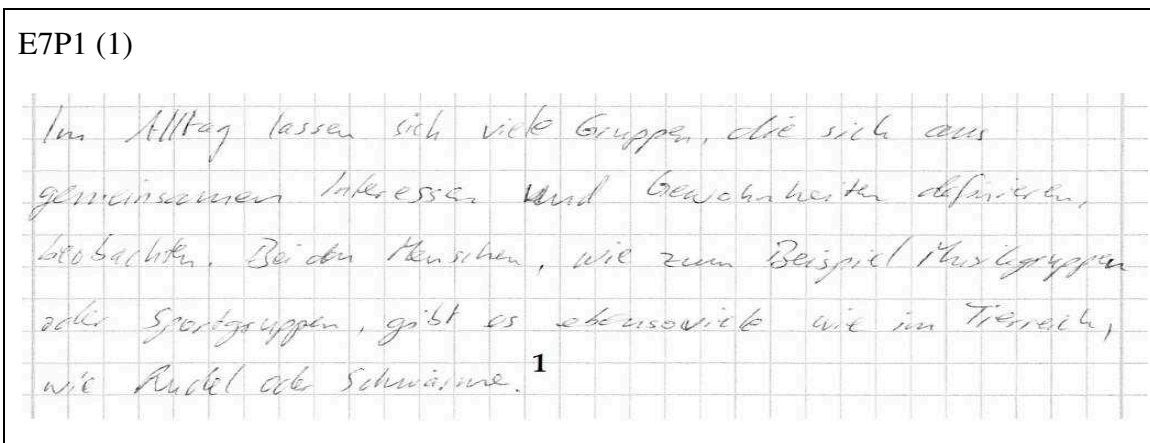 E7P1 (1)
Im Alltag lassen sich viele Gruppen, die sich aus
gemeinsamen Interessen und Gewohnheiten definieren,
beobachten. Bei den Menschen, wie zum Beispiel Musikgruppen
oder Sportgruppen, gibt es ebensoviele wie im Tierreich,
wie Rudel oder Schwärme. 1